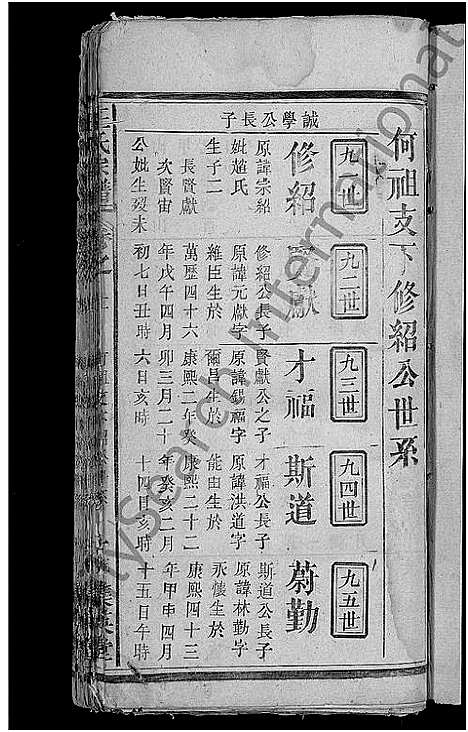 何祖支下修紹公世系
誠學公長子
九一世
修紹
原諱宗紹
妣趙氏
生子二
長賢獻
次賢宙
公妣生歿未
九二世
賢獻
修紹公長子
原諱元獻字
維臣生於
萬歷四十六
年戊午四月
初七日丑時
九三世
才福
賢獻公之子
原諱錫福字
爾昌生於
康熙二年癸
卯三月二十
六日亥時
九四世
斯道
才福公長子
原諱洪道字
能由生於
康熙二十二
年癸亥二月
十四日亥時
九五世
蔚勤
斯道公長子
原諱林勤字
永懷生於
康熙四十三
年甲申四月
十五日午時
王氏宗譜
MySearch International